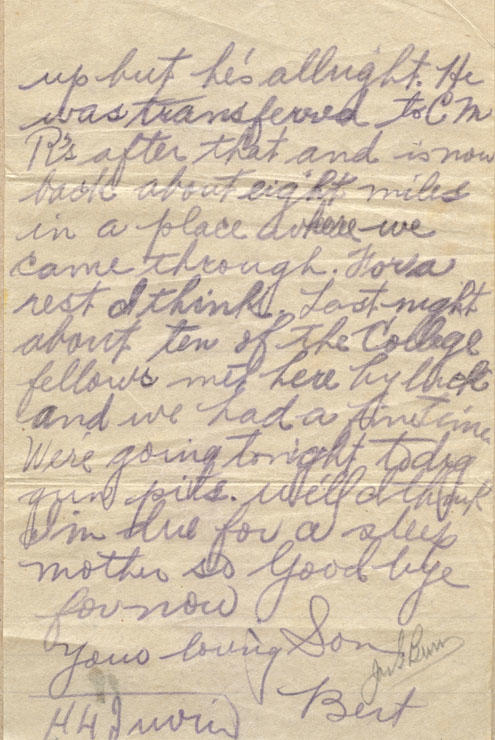 up but he's allright. He
was transferred to C M
R's after that and is now
back about eight miles
in a place where we
came through. For a
rest I think. Last night
about ten of the College
fellows met here by luck
and we had a fine time.
We're going tonight to dig
gun pits. Well I think
I'm due for a sleep
mother so Good bye
for now
Your loving Son
Bert
H H Irwin